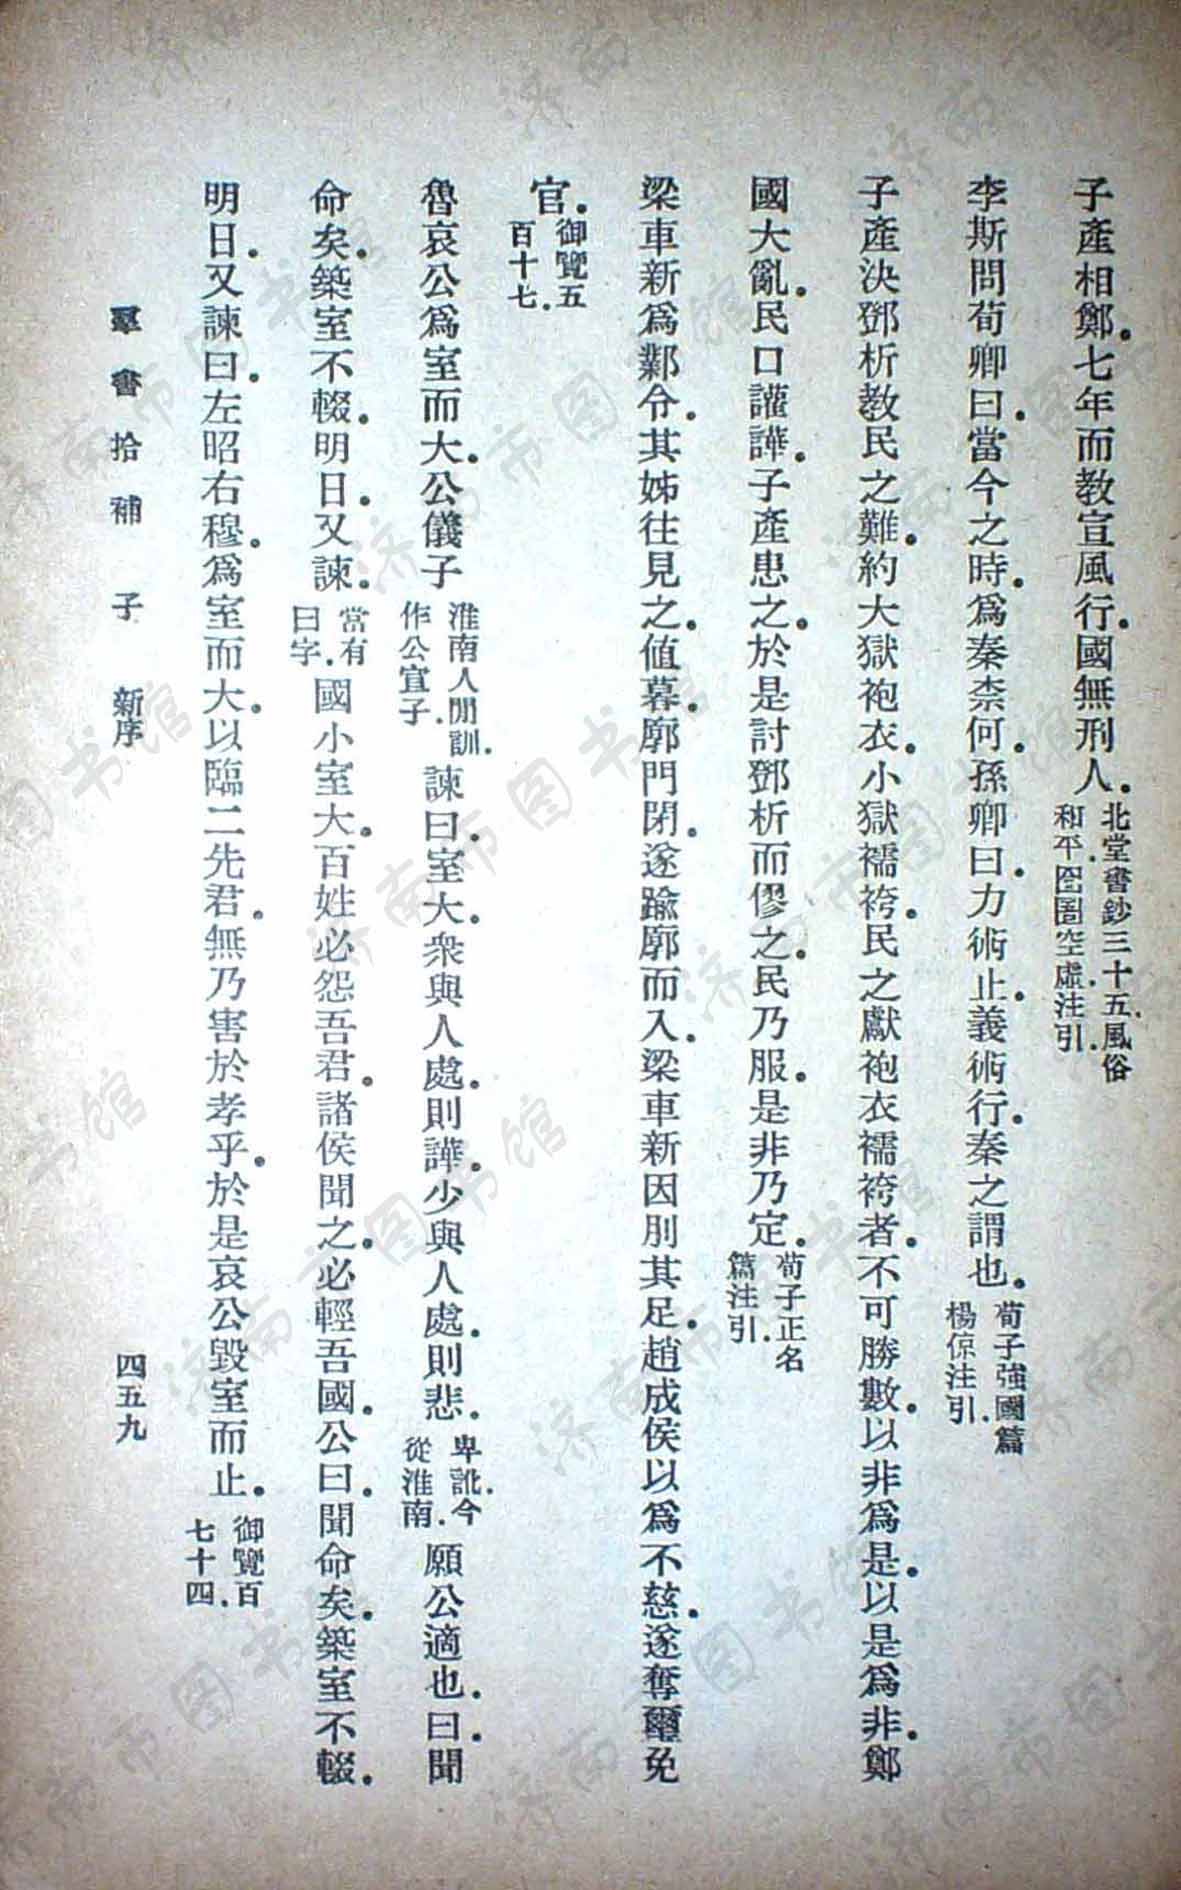 子產相鄭。七年而教宣風行。國無刑人。北堂書鈔三十五、風俗和平、囹圄空虛注引。
李斯問荀卿曰。當今之時。爲秦柰何。孫卿曰。力術止。義術行。秦之謂也。荀子強國篇楊倞注引。
子產決鄧析教民之難。約大獄袍衣。小獄襦袴。民之獻袍衣襦袴者。不可勝數。以非爲是。以是爲非。鄭
國大亂。民口讙譁。子產患之。於是討鄧析而僇之。民乃服。是非乃定。荀子正名篇注引。
梁車新爲鄴令。其姊往見之。値暮。廓門閉。遂踰廓而入。梁車新因刖其足。趙成侯以爲不慈。遂奪璽免
官。御覽五百十七。
魯哀公爲室而大。公儀子淮南人閒訓。作公宣子。諫曰。室大。衆與人處。則譁。少與人處。則悲。卑訛。今從淮南。願公適也。曰。聞
命矣。築室不輟。明日。又諫。當有曰字。國小室大。百姓必怨吾君。諸侯聞之。必輕吾國。公曰。聞命矣。築室不輟。
明日。又諫曰。左昭右穆。爲室而大。以臨二先君。無乃害於孝乎。於是哀公毀室而止。御覽百七十四。
羣書拾補 子 新序 四五九
济南市图书馆